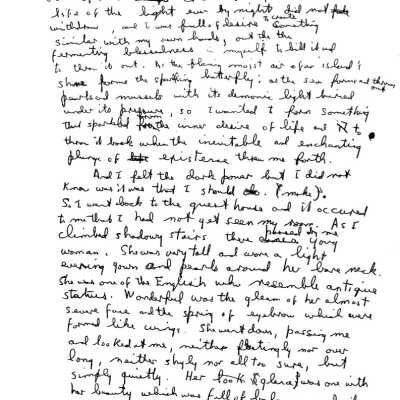 life of the light even by night did not
withdraw, and I was full of desire to create something
similar with my own hands, out of the
fermenting blessedness in myself to build it and
to throw it out. As the flowing moist air of an island's
shore forms the sparkling butterfly: as the sea forms and throws out
pearls and mussels with its demonic light buried
under its pressure, so I wanted to form something
that sparkled from the inner desire of life and to
throw it back when the inevitable and enchanting
plunge of existence threw me forth.
And I felt the dark power but I did not
know was it was that I should do. (make).
So I went back to the guest house and it occurred
to me that I had not yet seen my room. As I
climbed shadowy stairs there passed by me a young
woman. She was very tall and wore a light
evening gown and pearls around her bare neck.
She was one of the English who resemble antique
statues. Wonderful was the gleam of her almost
severe face and the spring of eyebrow which were
formed like wings. She went down, passing me
and looked at me, neither fleetingly nor over
long, neither shyly nor all too sure, but
simply quietly. Her look (glance) was one with
her beauty which was full of